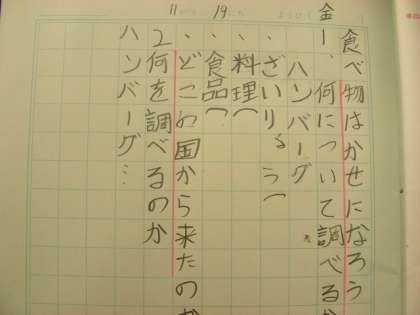 11 19
金
食べ物はかせになろう
一、何について調べるか
ハンバーグ
・ざいりょう(
・料理(
・食品(
・どこの国から来たのか
2何を調べるのか
ハンバーグ…